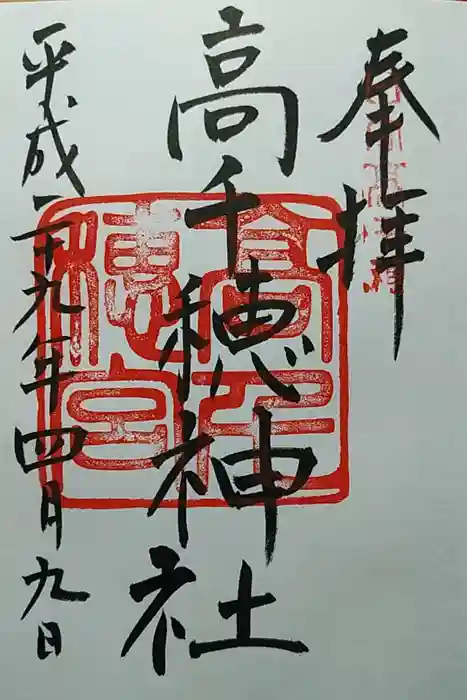 奉拝
高千穂神社
高千穂宮
平成二十九年四月九日